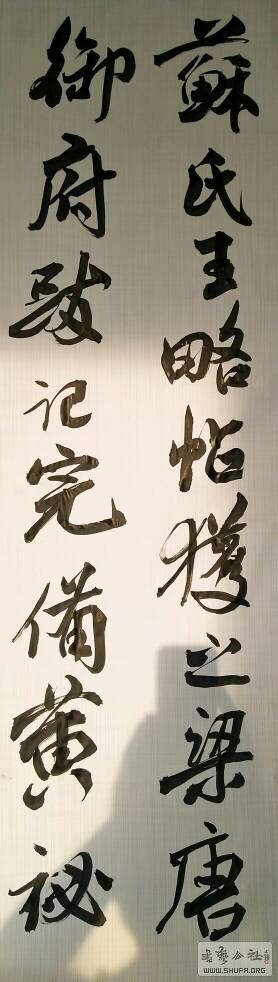 蘇氏王略帖獲之梁唐
御府跋記完備黄秘
書藝公社
WWW.SHUFA.ORG